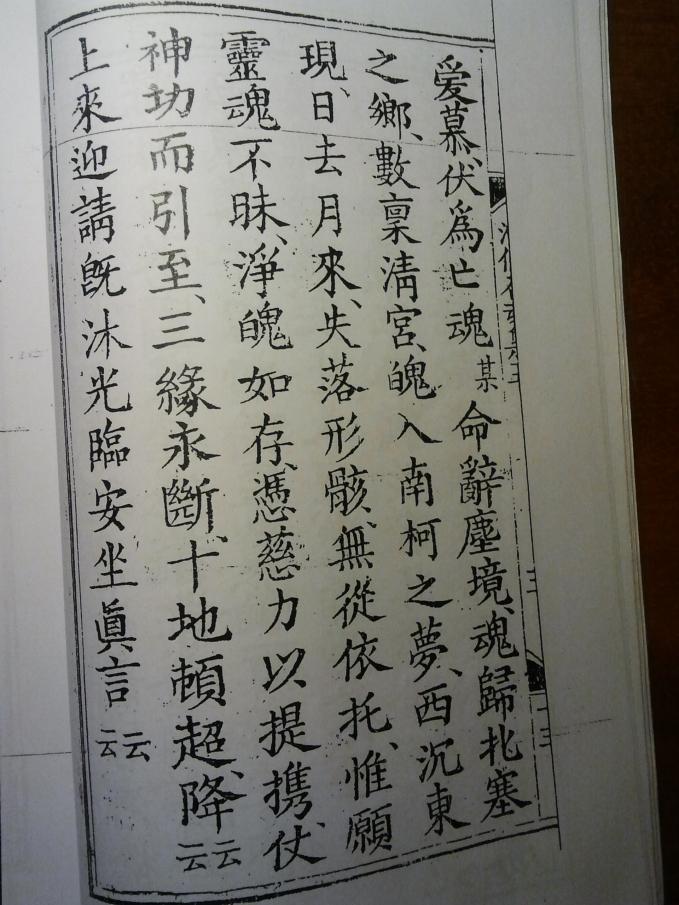 爱慕、伏爲亡魂某命辭塵境、魂歸北塞
之鄉、數稟清宮、魄入南柯之夢、西沉東
現、日去月來、失落形骸、無從依托、惟願
靈魂不昧、淨魄如存、憑慈力以提携、仗
神功而引至、三緣永斷、十地頓超、降云云
上來迎請旣沐光臨安坐眞言云云
三
十三